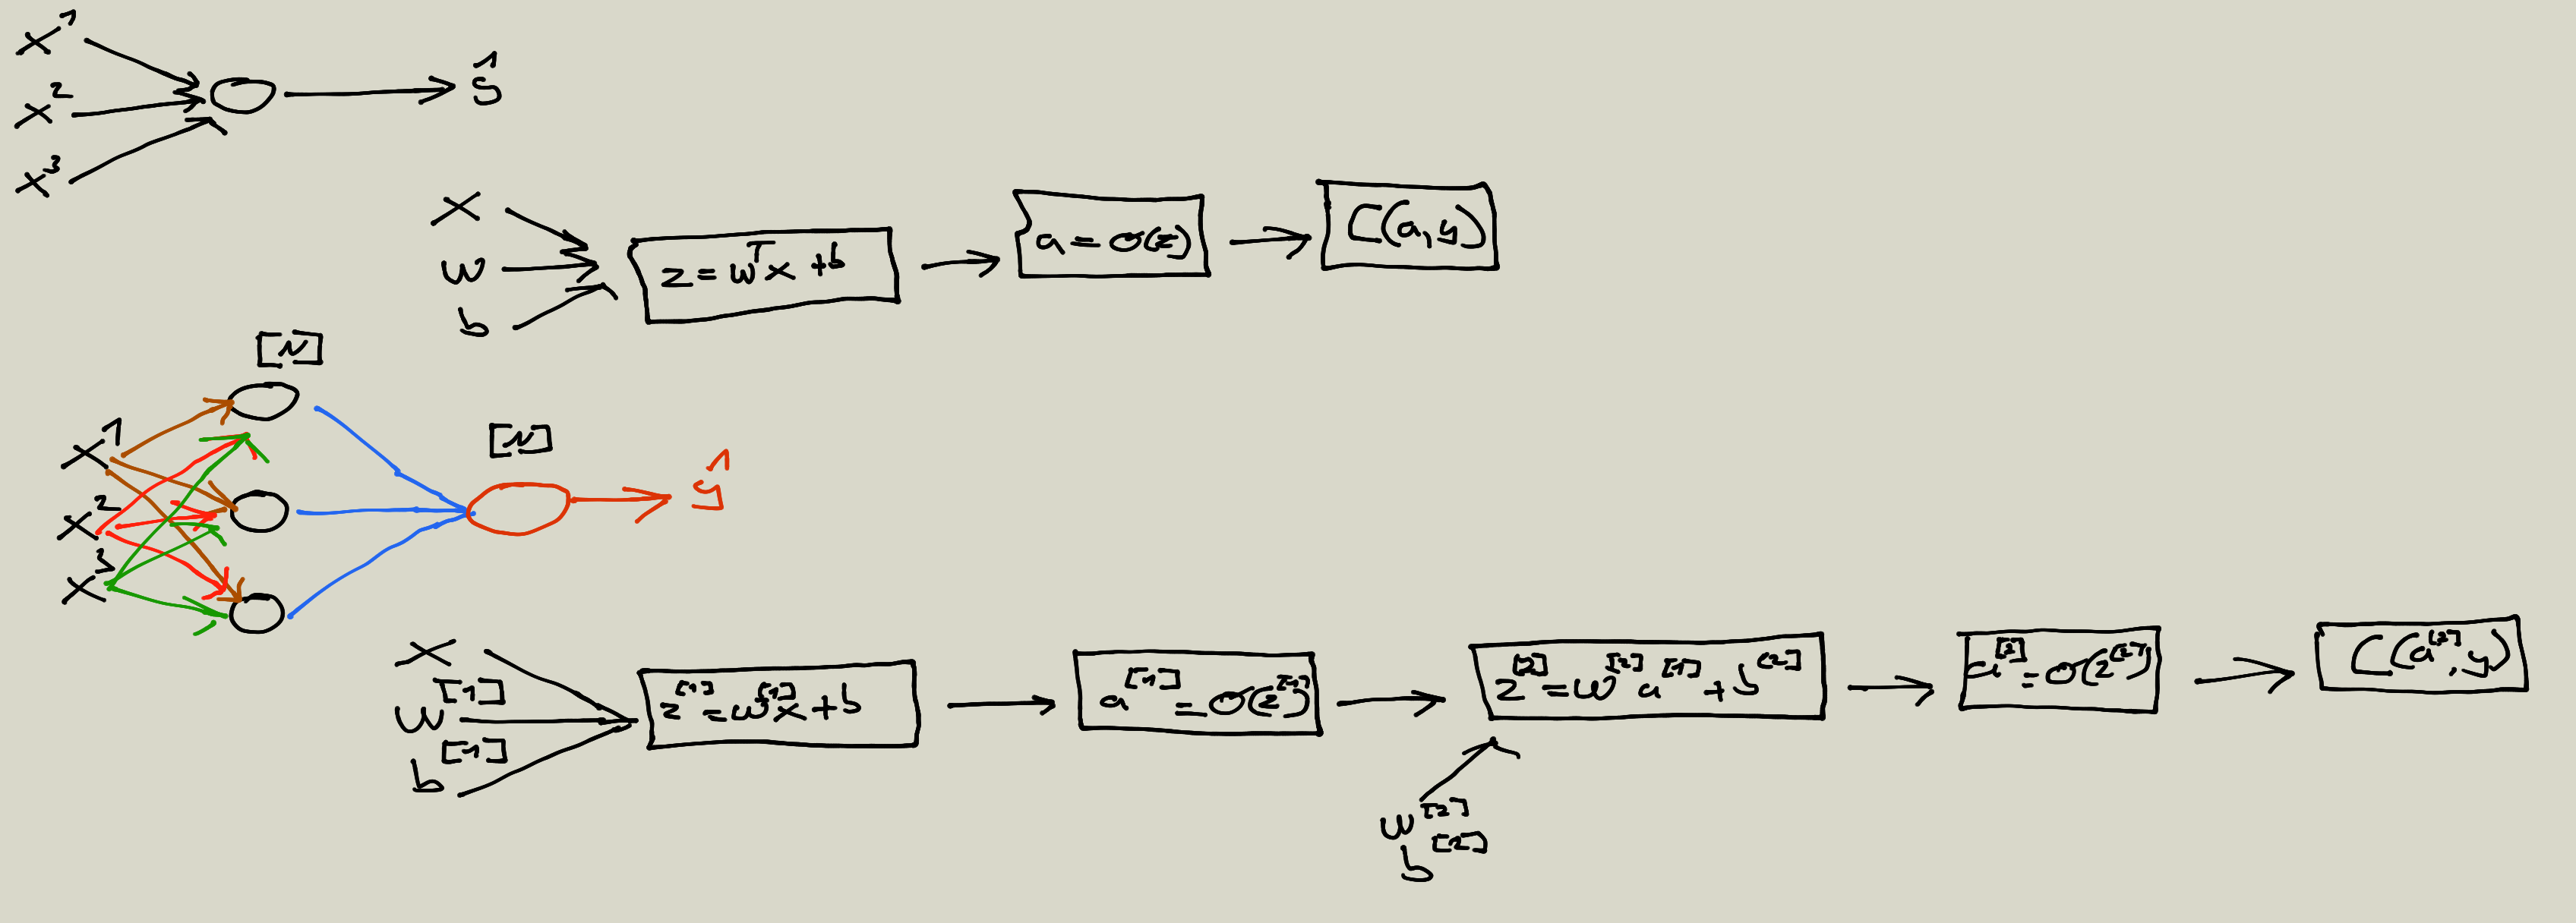 x¹
x²
x³
ŝ
x
w
b
z = wᵀx + b
a = σ(z)
C(a, y)
[N]
[N]
x¹
x²
x³
ŷ
x
w[1]
b[1]
z[1] = w[1]x + b
a[1] = σ(z[1])
z[2] = w[2] a[1] + b[2]
a[2] = σ(z[2])
C(a[2], y)
w[2]
b[2]